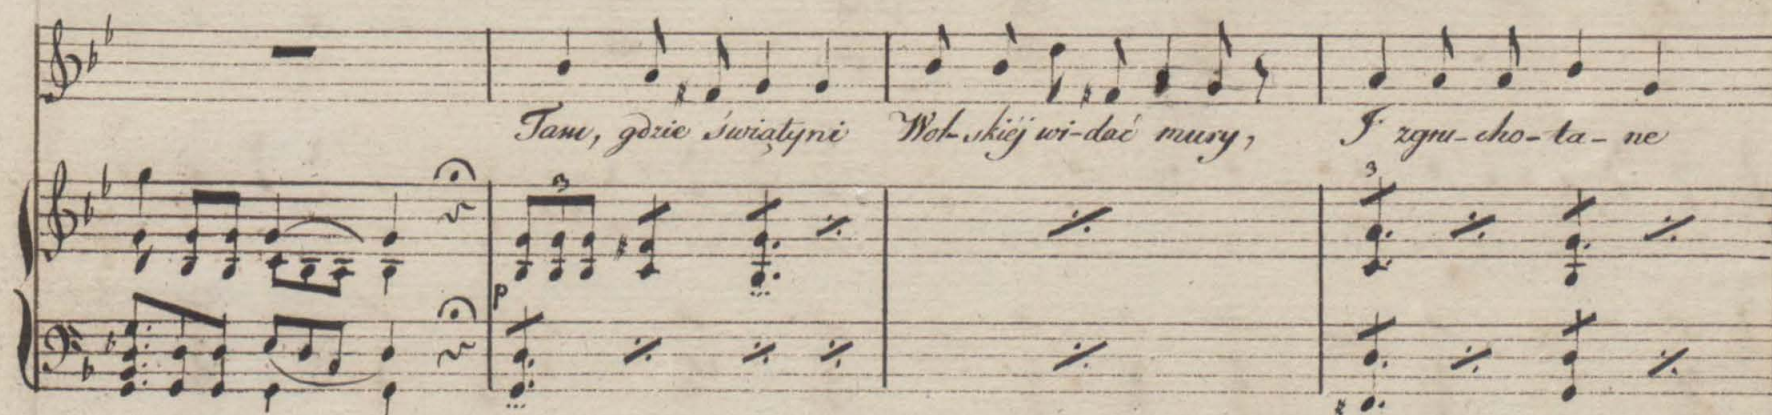 Tam, gdzie świątyni Wol-skiéj wi-dać mury, I zgru-cho-ta-ne
3 3
p